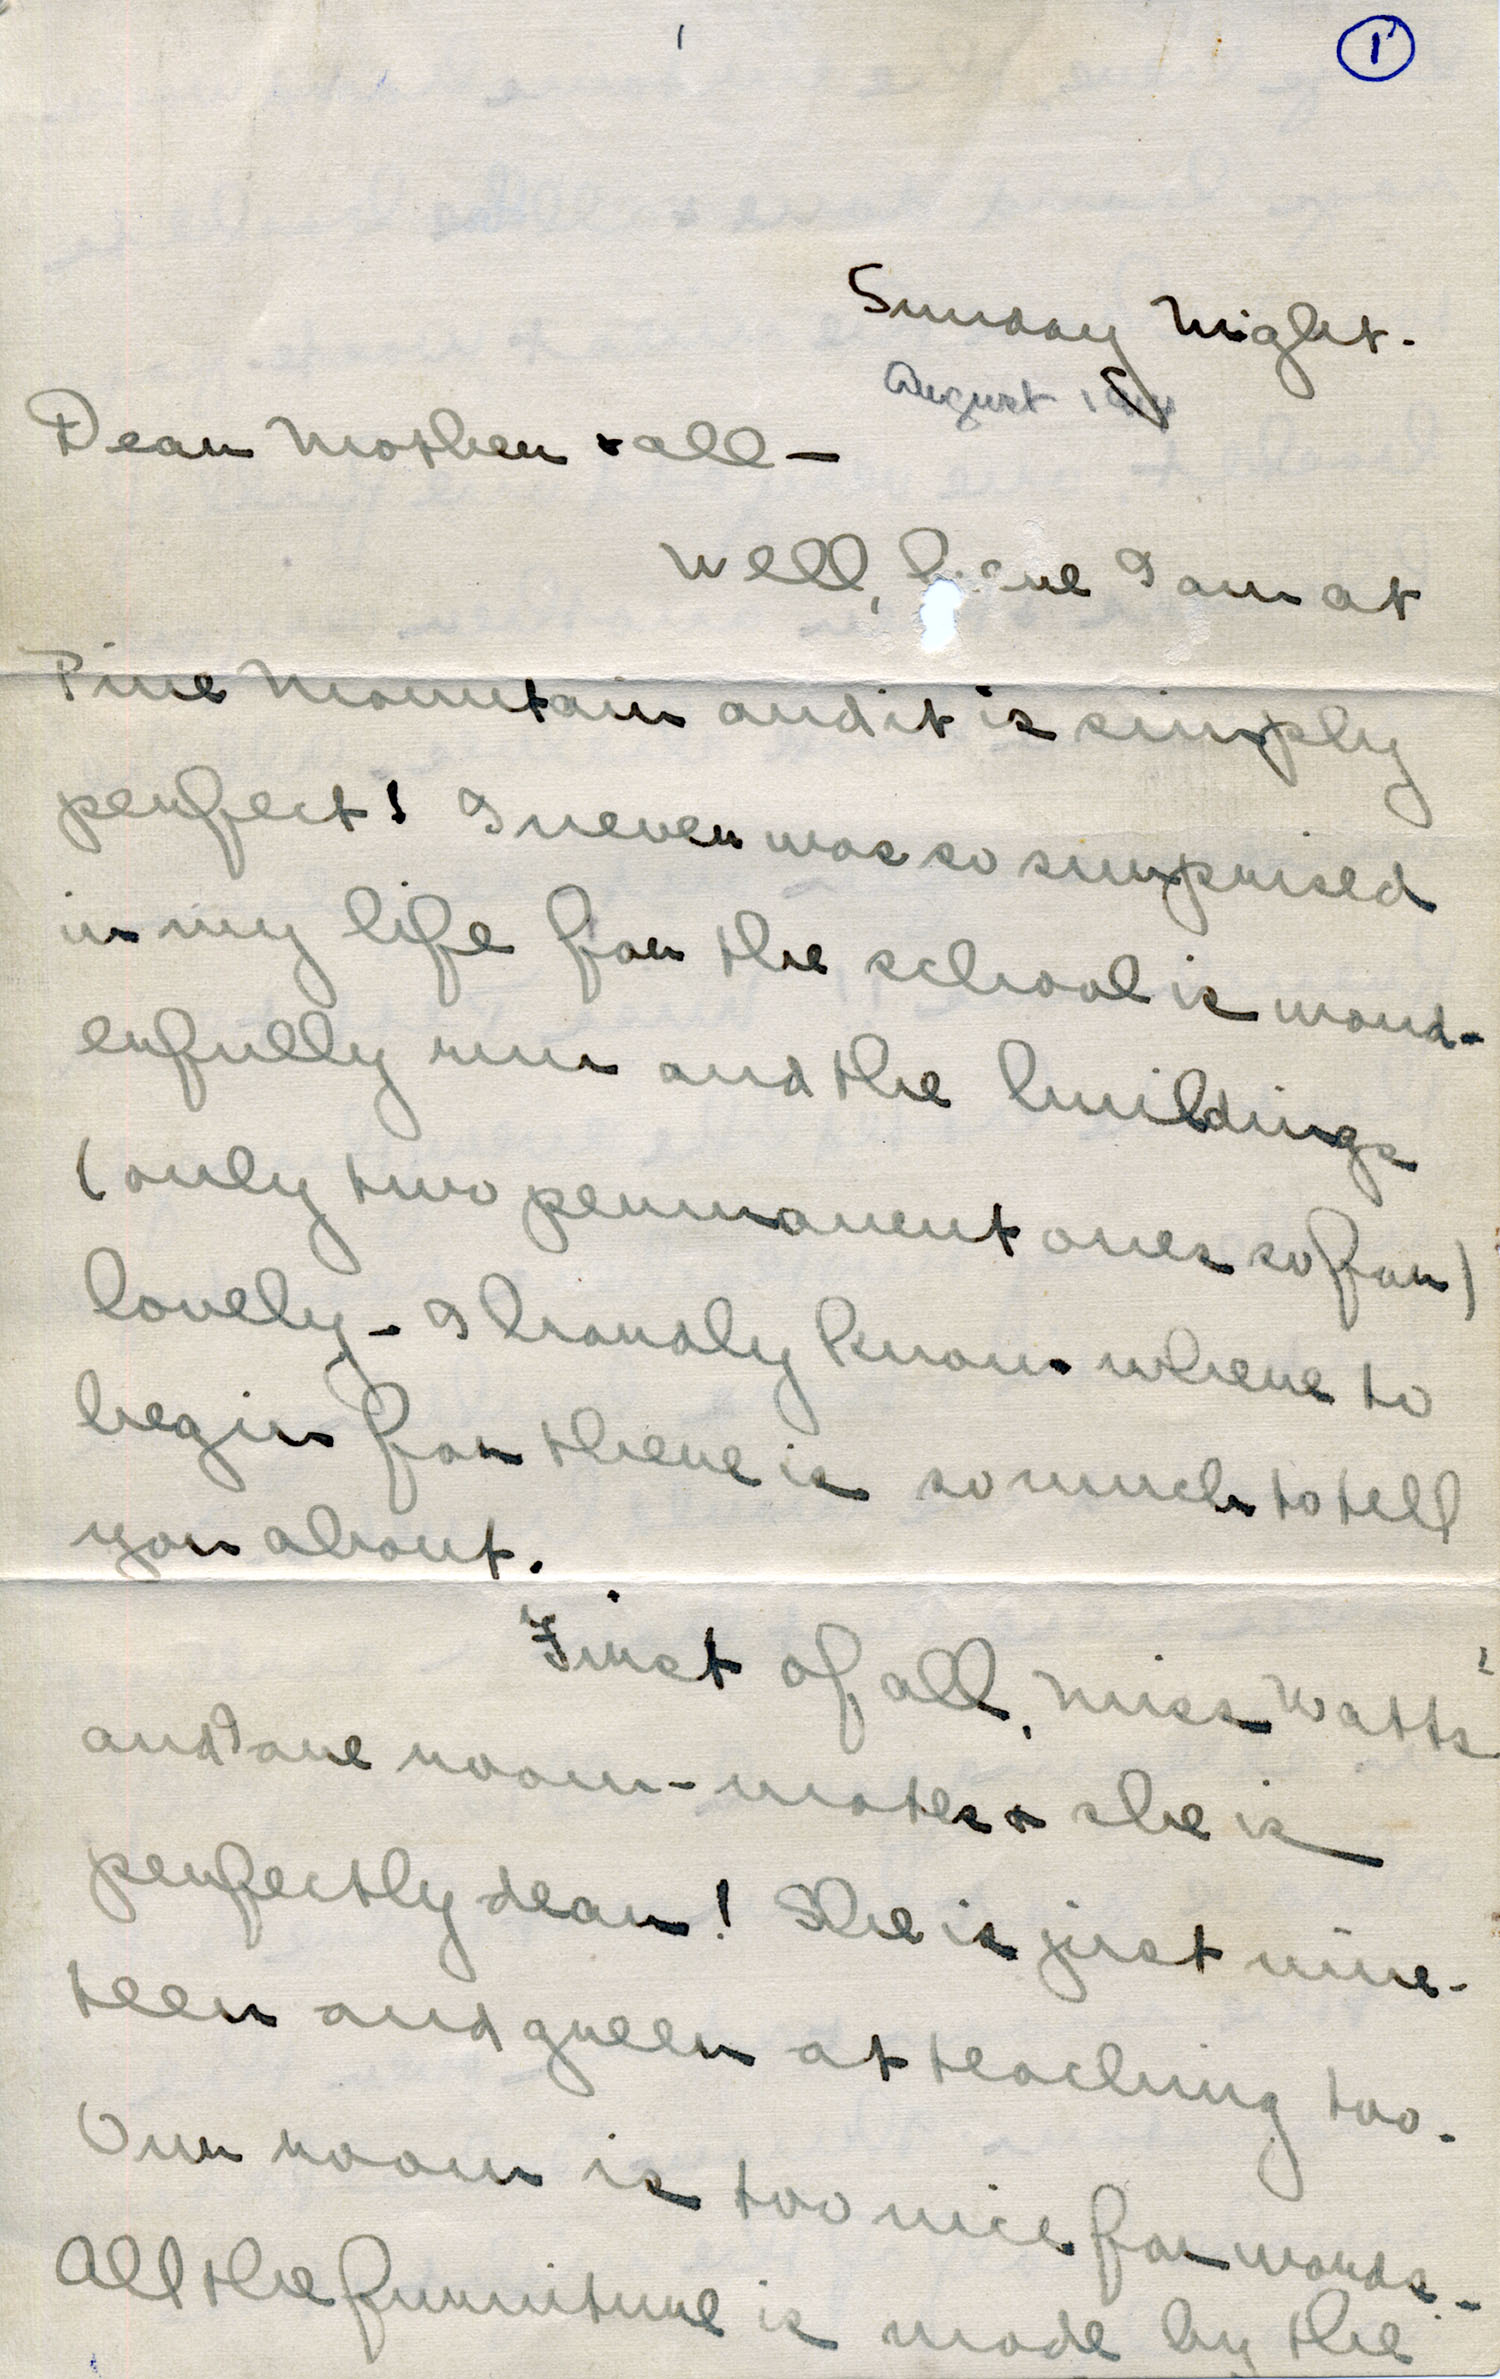 1
1
Sunday Night.
August
Dear Mother + all —
Well, here I am at
Pine Mountain and it is simply
perfect! I never was so surprised
in my life for the school is wond-
erfully run and the buildings
(only two permanent ones so far)
lovely - I hardly know where to
begin for there is so much to tell
you about.
First of all, Miss Watts
and I are room-mates + she is
perfectly dear! She is just nine-
teen and green at teaching too.
Our room is too nice for words. -
All the furniture is made by the